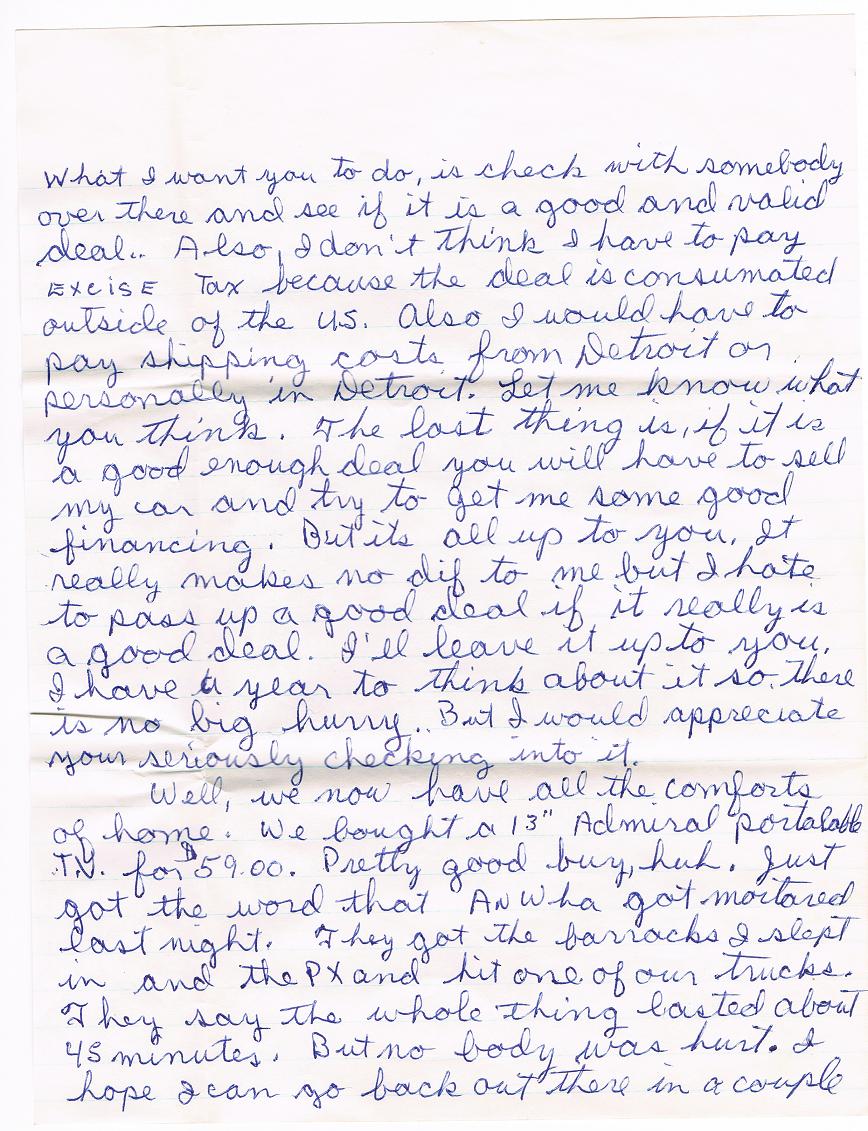 What I want you to do, is check with somebody
over there and see if it is a good and valid
deal.. Also, I don't think I have to pay
EXCISE Tax because the deal is consumated
outside of the U.S. Also I would have to
pay shipping costs from Detroit or
personally in Detroit. Let me know what
you think. The last thing is, if it is
a good enough deal you will have to sell
my car and try to get me some good
financing. But its all up to you. It
really makes no dif to me but I hate
to pass up a good deal if it really is
a good deal. I'll leave it up to you.
I have a year to think about it so there
is no big hurry.. But I would appreciate
your seriously checking into it.
Well, we now have all the comforts
of home. We bought a 13" Admiral portabable
T.V. for $59.00. Pretty good buy, huh. Just
got the word that AN Wha got mortared
last night. They got the barracks I slept
in and the PX and hit one of our trucks.
They say the whole thing lasted about
45 minutes. But no body was hurt. I
hope I can go back out there in a couple